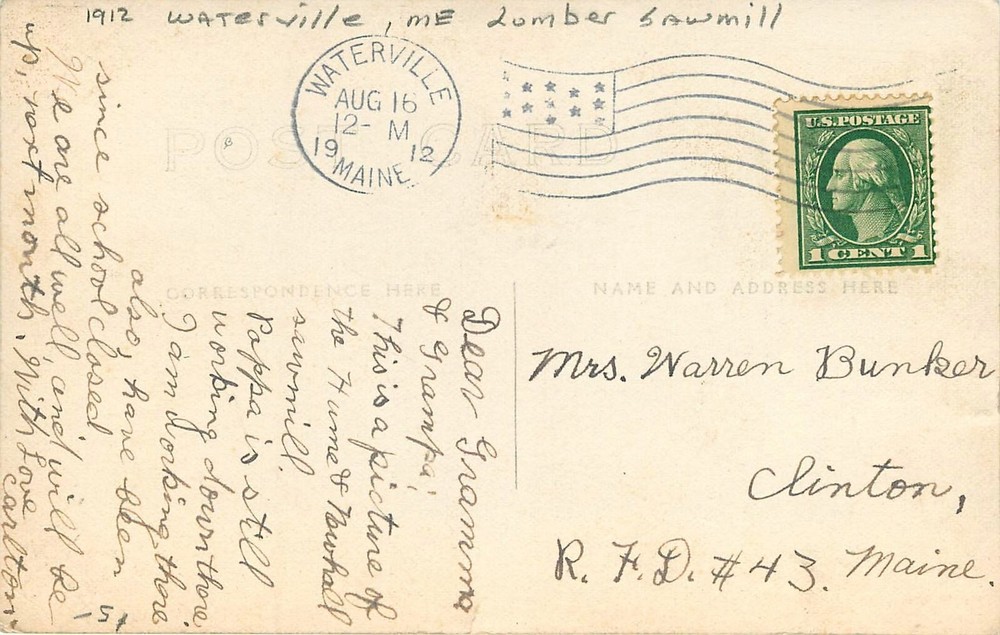 1912 WATERVILLE, ME Lumber SAWMILL
WATERVILLE
AUG 16
12- M
19 12
MAINE
U.S. POSTAGE
1 CENT 1
POST CARD
CORRESPONDENCE HERE
NAME AND ADDRESS HERE
Dear Gramma
& Grampa:
This is a picture of
the Hume & Newhall
sawmill.
Pappa is still
working down there
I am working there
also, have been
since school closed
We are all well, and will be
up, next month. With Love
Carlton.
Mrs. Warren Bunker
Clinton,
R. F. D. #43. Maine.